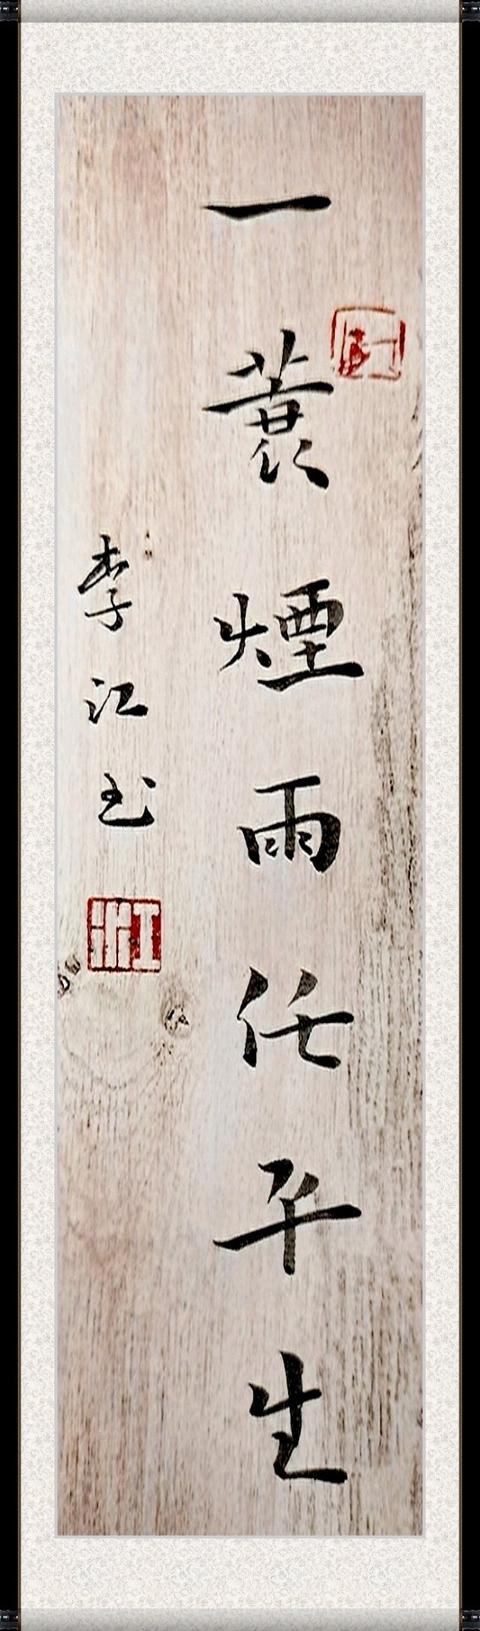 一蓑煙雨任平生
李江书